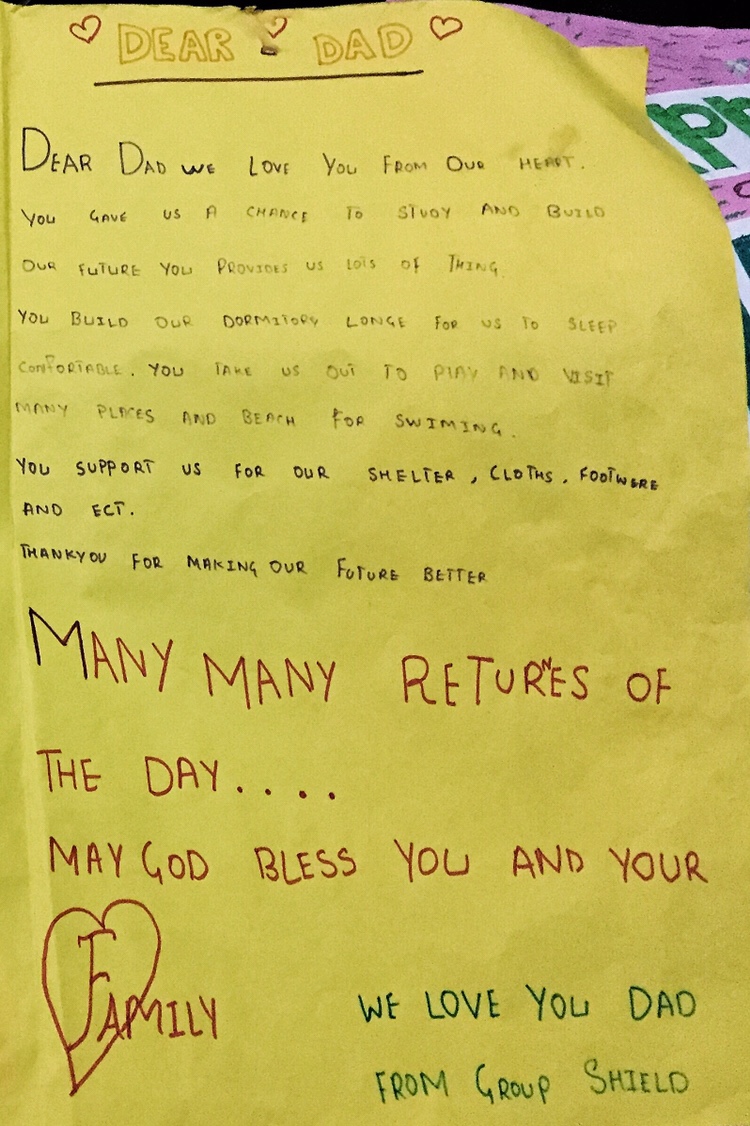 DEAR DAD
DEAR DAD WE LOVE YOU FROM OUR HEART.
YOU GAVE US A CHANCE TO STUDY AND BUILD
OUR FUTURE YOU PROVIDES US LOTS OF THING.
YOU BUILD OUR DORMITORY LONGE FOR US TO SLEEP
COMFORTABLE. YOU TAKE US OUT TO PLAY AND VISIT
MANY PLACES AND BEACH FOR SWIMING.
YOU SUPPORT US FOR OUR SHELTER, CLOTHS, FOOTWERE
AND ECT.
THANKYOU FOR MAKING OUR FUTURE BETTER
MANY MANY RETURNES OF
THE DAY....
MAY GOD BLESS YOU AND YOUR
FAMILY
WE LOVE YOU DAD
FROM GROUP SHIELD